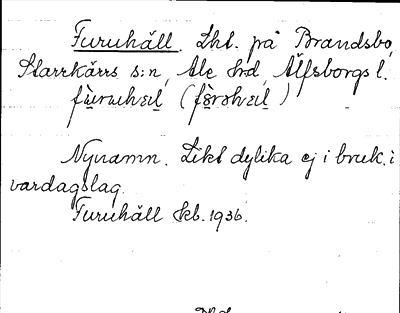 Furuhäll. Lht. på Brandsbo,
Starrkärrs s:n, Ale hd, Älfsborgs l.
fùruhɛıl (fờrɘhɛıl)
Nynamn. Likt dylika ej i bruk i
vardagslag.
Furuhäll Jkb. 1936.